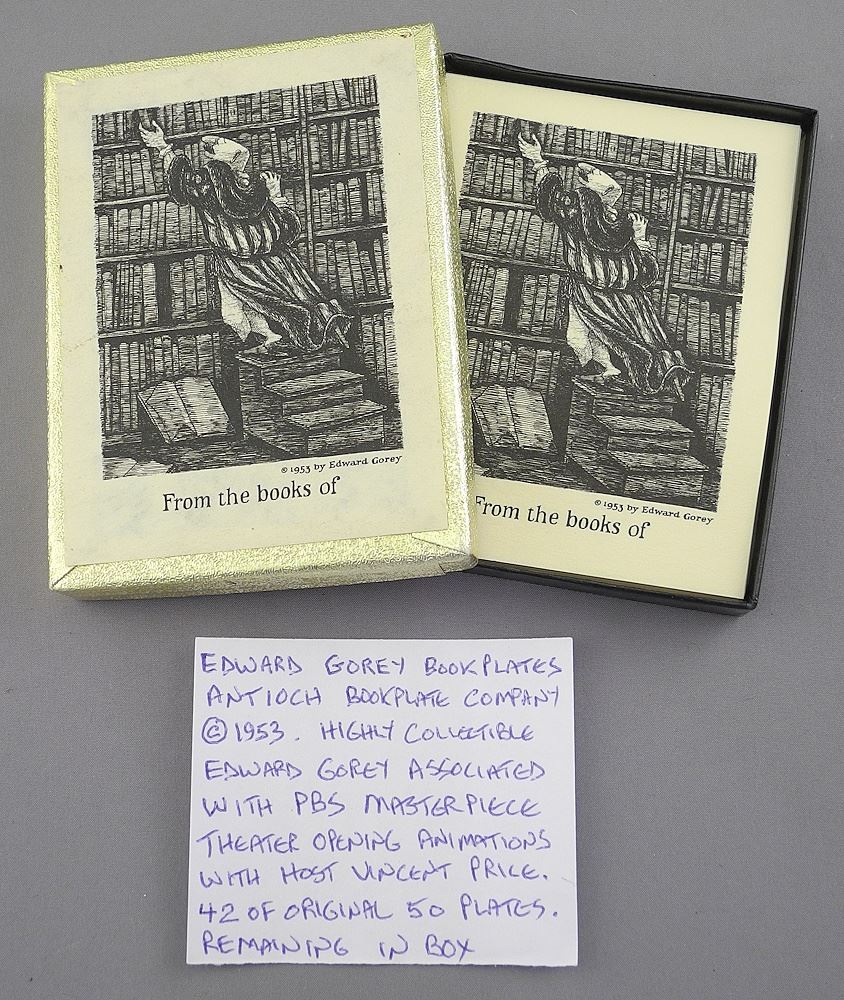 © 1953 by Edward Gorey
From the books of
© 1953 by Edward Gorey
From the books of
EDWARD GOREY BOOKPLATES
ANTIOCH BOOKPLATE COMPANY
© 1953. HIGHLY COLLECTIBLE
EDWARD GOREY ASSOCIATED
WITH PBS MASTERPIECE
THEATER OPENING ANIMATIONS
WITH HOST VINCENT PRICE.
42 OF ORIGINAL 50 PLATES.
REMAINING IN BOX